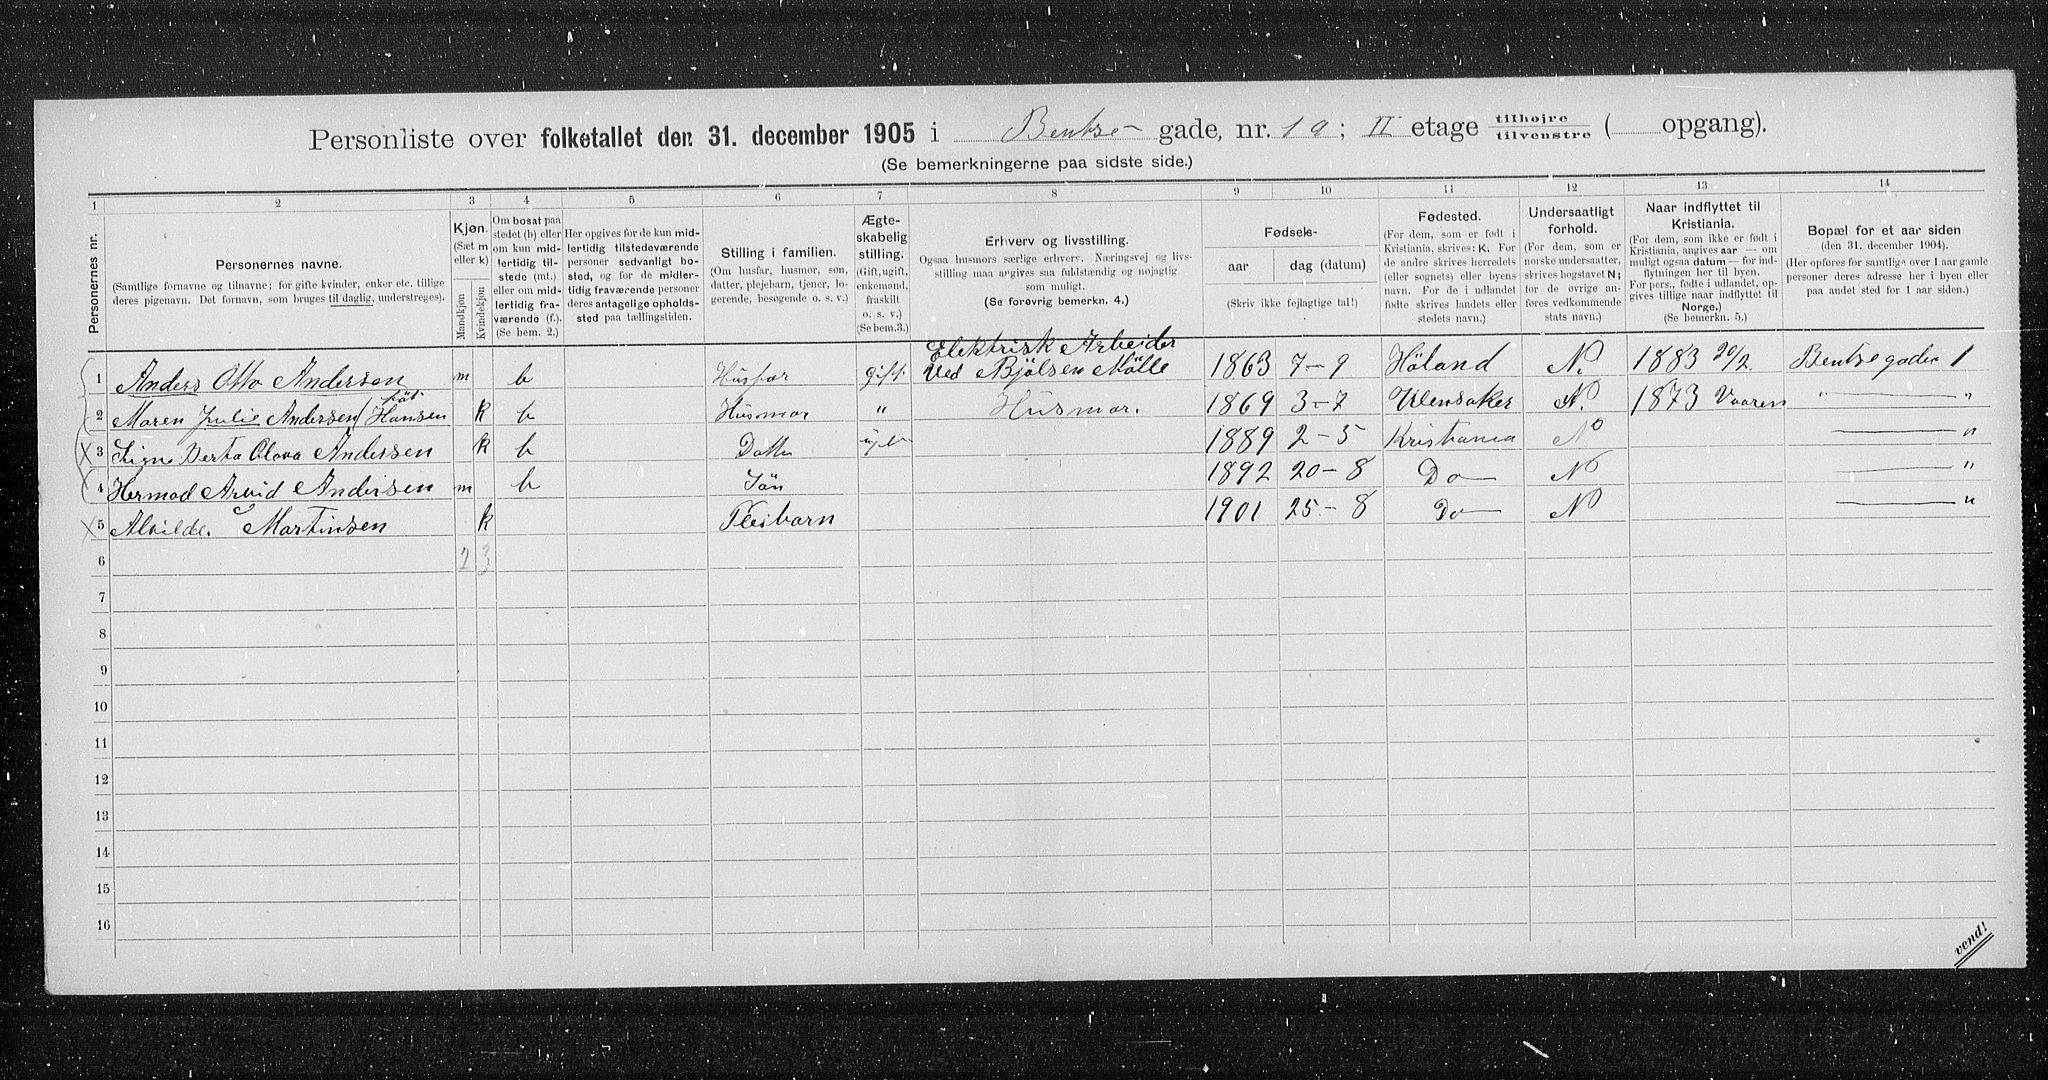 Personliste over folketallet den 31. december 1905 i Bentse- gade, nr. 1 a; II etage tilhøjre tilvenstre ( opgang).
(Se bemerkningerne paa sidste side.)
1 2 3 4 5 6 7 8 9 10 11 12 13 14
Personernes nr.
Personernes navne.
(Samtlige fornavne og tilnavne; for gifte kvinder, enker etc. tillige
deres pigenavn. Det fornavn, som bruges til daglig, understreges).
Kjøn.
(Sæt m
eller k)
Mandkjøn
Kvindekjøn
Om bosat paa
stedet (b) eller
om kun mid-
lertidig til-
stede (mt.)
eller om mid-
lertidig fra-
værende (f.).
(Se bem. 2.)
Her opgives for de kun mid-
lertidig tilstedeværende
personer sedvanligt bo-
sted, og for de midler-
tidig fraværende personer
deres antagelige opholds-
sted paa tællingstiden.
Stilling i familien.
(Om husfar, husmor, søn,
datter, plejebarn, tjener, lo-
gerende, besøgende o. s. v.)
Ægte-
skabelig
stilling.
(Gift, ugift,
enkemand,
fraskilt
o. s. v.)
(Se bem. 3.)
Erhverv og livsstilling.
Ogsaa husmors særlige erhverv. Næringsvej og livs-
stilling maa angives saa fuldstændig og nøjagtig
som muligt.
(Se forøvrig bemerkn. 4.)
Fødsels-
aar
dag (datum)
(Skriv ikke fejlagtige tal!)
Fødested.
(For dem, som er født i
Kristiania, skrives: K. For
de andre skrives herredets
(eller sognets) eller byens
navn. For de i udlandet
fødte skrives landets eller
stedets navn.)
Undersaatligt
forhold.
(For dem, som er
norske undersatter,
skrives bogstavet N;
for de øvrige an-
føres vedkommende
stats navn.)
Naar indflyttet til
Kristiania.
(For dem, som ikke er født i
Kristiania, angives aar — om
muligt ogsaa datum — for ind-
flytningen her til byen.
For pers., fødte i udlandet, op-
gives tillige naar indflyttet til
Norge.)
(Se bemerkn. 5.)
Bopæl for et aar siden
(den 31. december 1904).
(Her opføres for samtlige over 1 aar gamle
personer deres adresse her i byen eller
paa andet sted for 1 aar siden.)
Elektrisk Arbeider
1 Anders Otto Andersen m b Husfar gift Ved Bjölsen Mölle 1863 7-9 Höland N. 1883 20/2. Bentse gaden 1
föd.
2 Maren Julie Andersen (Hansen k b Husmor " Husmor. 1869 3-7 Ulensaker N. 1873 Vaaren " — "
3 Signe Berta Olava Andersen k b Datter 1889 2-5 Kristiania N — "
4 Hermod Arvid Andersen m b Sön 1892 20-8 Do N — "
5 Alvilde. Martinsen k Pleibarn 1901 25-8 Do N — "
6 2 3
7
8
9
10
11
12
13
14
15
16
vend!